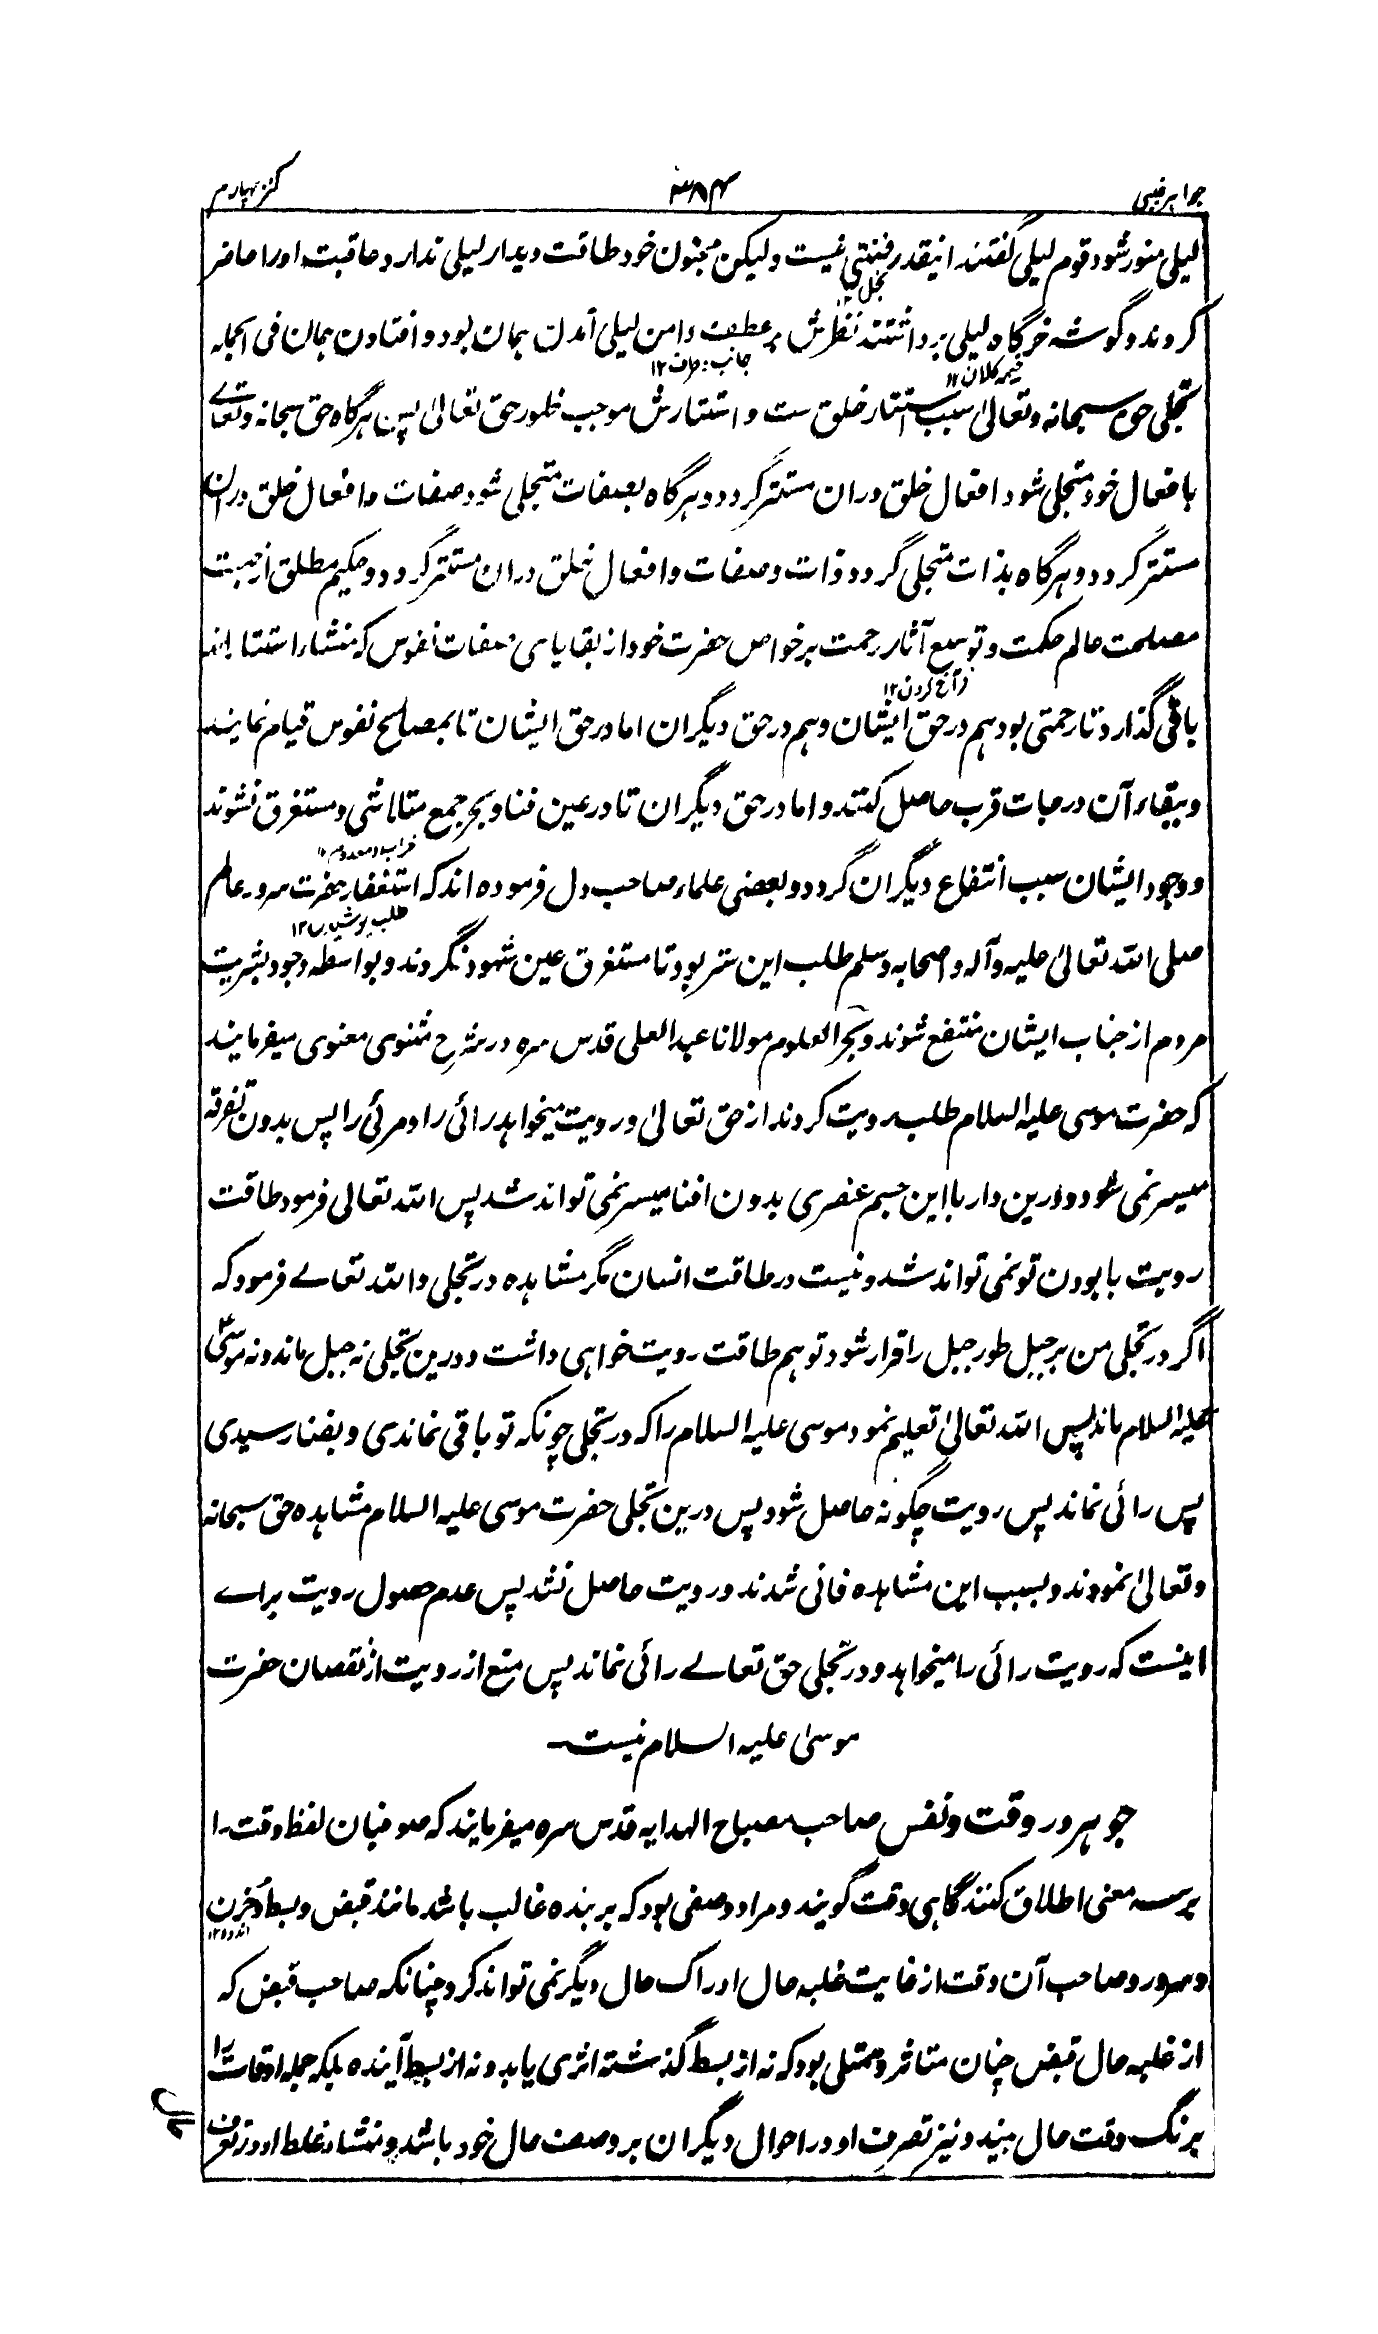 جواهر غیبی
۳۸۴
کنز چهارم
لیلی منور شود قوم لیلی گفتند اینقدر ضنتی نیست ولیکن مجنون خود طاقت دیدار لیلی ندارد عاقبت اورا حاضر
بخل ۱۲
کردند و گوشه خرگاه لیلی برداشتند نظرش بر عطف دامن لیلی آمدن همان بود و افتادن همان فی الجمله
خیمه کلان ۱۲
جانب و طرف ۱۲
تجلی حق سبحانه وتعالیٰ سبب استتار خلق ست و استتارش موجب ظهور حق تعالیٰ پس هرگاه حق سبحانه وتعالے
بافعال خود متجلی شود افعال خلق دران مستتر گردد و هرگاه بصفات متجلی شود صفات وافعال خلق دران
مستتر گردد و هرگاه بذات متجلی گردد ذات وصفات وافعال خلق دران مستتر گردد و حکیم مطلق از جهت
مصلحت عالم حکمت و توسیع آثار رحمت بر خواص حضرت خود از بقایای صفات نفوس که منشاء استتار اند
فراخ کردن ۱۲
باقی گذارد تا رحمتی بود هم در حق ایشان و هم در حق دیگران اما در حق ایشان تا بمصالح نفوس قیام نمایند
و ببقاء آن درجات قرب حاصل کنند و اما در حق دیگران تا در عین فنا و بحر جمع متلاشی و مستغرق نشوند
خراب و معدوم ۱۲
و وجود ایشان سبب انتفاع دیگران گردد و بعضی علماء صاحب دل فرموده اند که استغفار حضرت سرور عالم
طلب پوشیدن ۱۲
صلی الله تعالیٰ علیه وآله واصحابه وسلم طلب این ستر بود تا مستغرق عین شهود نگردند و بواسطه وجود بشریت
مردم از جناب ایشان منتفع شوند و بحر العلوم مولانا عبد العلی قدس سره در شرح مثنوی معنوی میفرمایند
که حضرت موسی علیه السلام طلب رویت کردند از حق تعالیٰ و رویت میخواهد رائی را و مرئی را پس بدون تفرقه
میسر نمی شود و درین دار با این جسم عنصری بدون افنا میسر نمی تواند شد پس الله تعالی فرمود طاقت
رویت با بودن تو نمی تواند شد و نیست در طاقت انسان مگر مشاهده در تجلی و الله تعالے فرمود که
اگر در تجلی من بر جبل طور جبل را قرار شود تو هم طاقت رویت خواهی داشت و درین تجلی نه جبل ماند و نه موسیٰ
علیه السلام ماند پس الله تعالیٰ تعلیم نمود موسی علیه السلام را که در تجلی چونکه تو باقی نماندی و بفنا رسیدی
پس رائی نماند پس رویت چگونه حاصل شود پس درین تجلی حضرت موسی علیه السلام مشاهده حق سبحانه
وتعالیٰ نمودند و بسبب این مشاهده فانی شدند و رویت حاصل نشد پس عدم حصول رویت براے
اینست که رویت رائی را میخواهد و در تجلی حق تعالے رائی نماند پس منع از رویت از نقصان حضرت
موسیٰ علیه السلام نیست
جوهر در وقت و نفس صاحب مصباح الهدایه قدس سره میفرمایند که صوفیان لفظ وقت را
بر سه معنی اطلاق کنند گاهی وقت گویند و مراد وصفی بود که بر بنده غالب باشد مانند قبض و بسط و حزن
اندوه ۱۲
و سرور و صاحب آن وقت از غایت غلبه حال ادراک حال دیگر نمی تواند کرد چنانکه صاحب قبض که
از غلبه حال قبض چنان متاثر و ممتلی بود که نه از بسط گذشته اثری یابد و نه از بسط آینده بلکه جمله اوقات را
برنگ وقت حال بیند و نیز تصرف او در احوال دیگران بر وصف حال خود باشد و منشاء غلط او در تصرف
حال